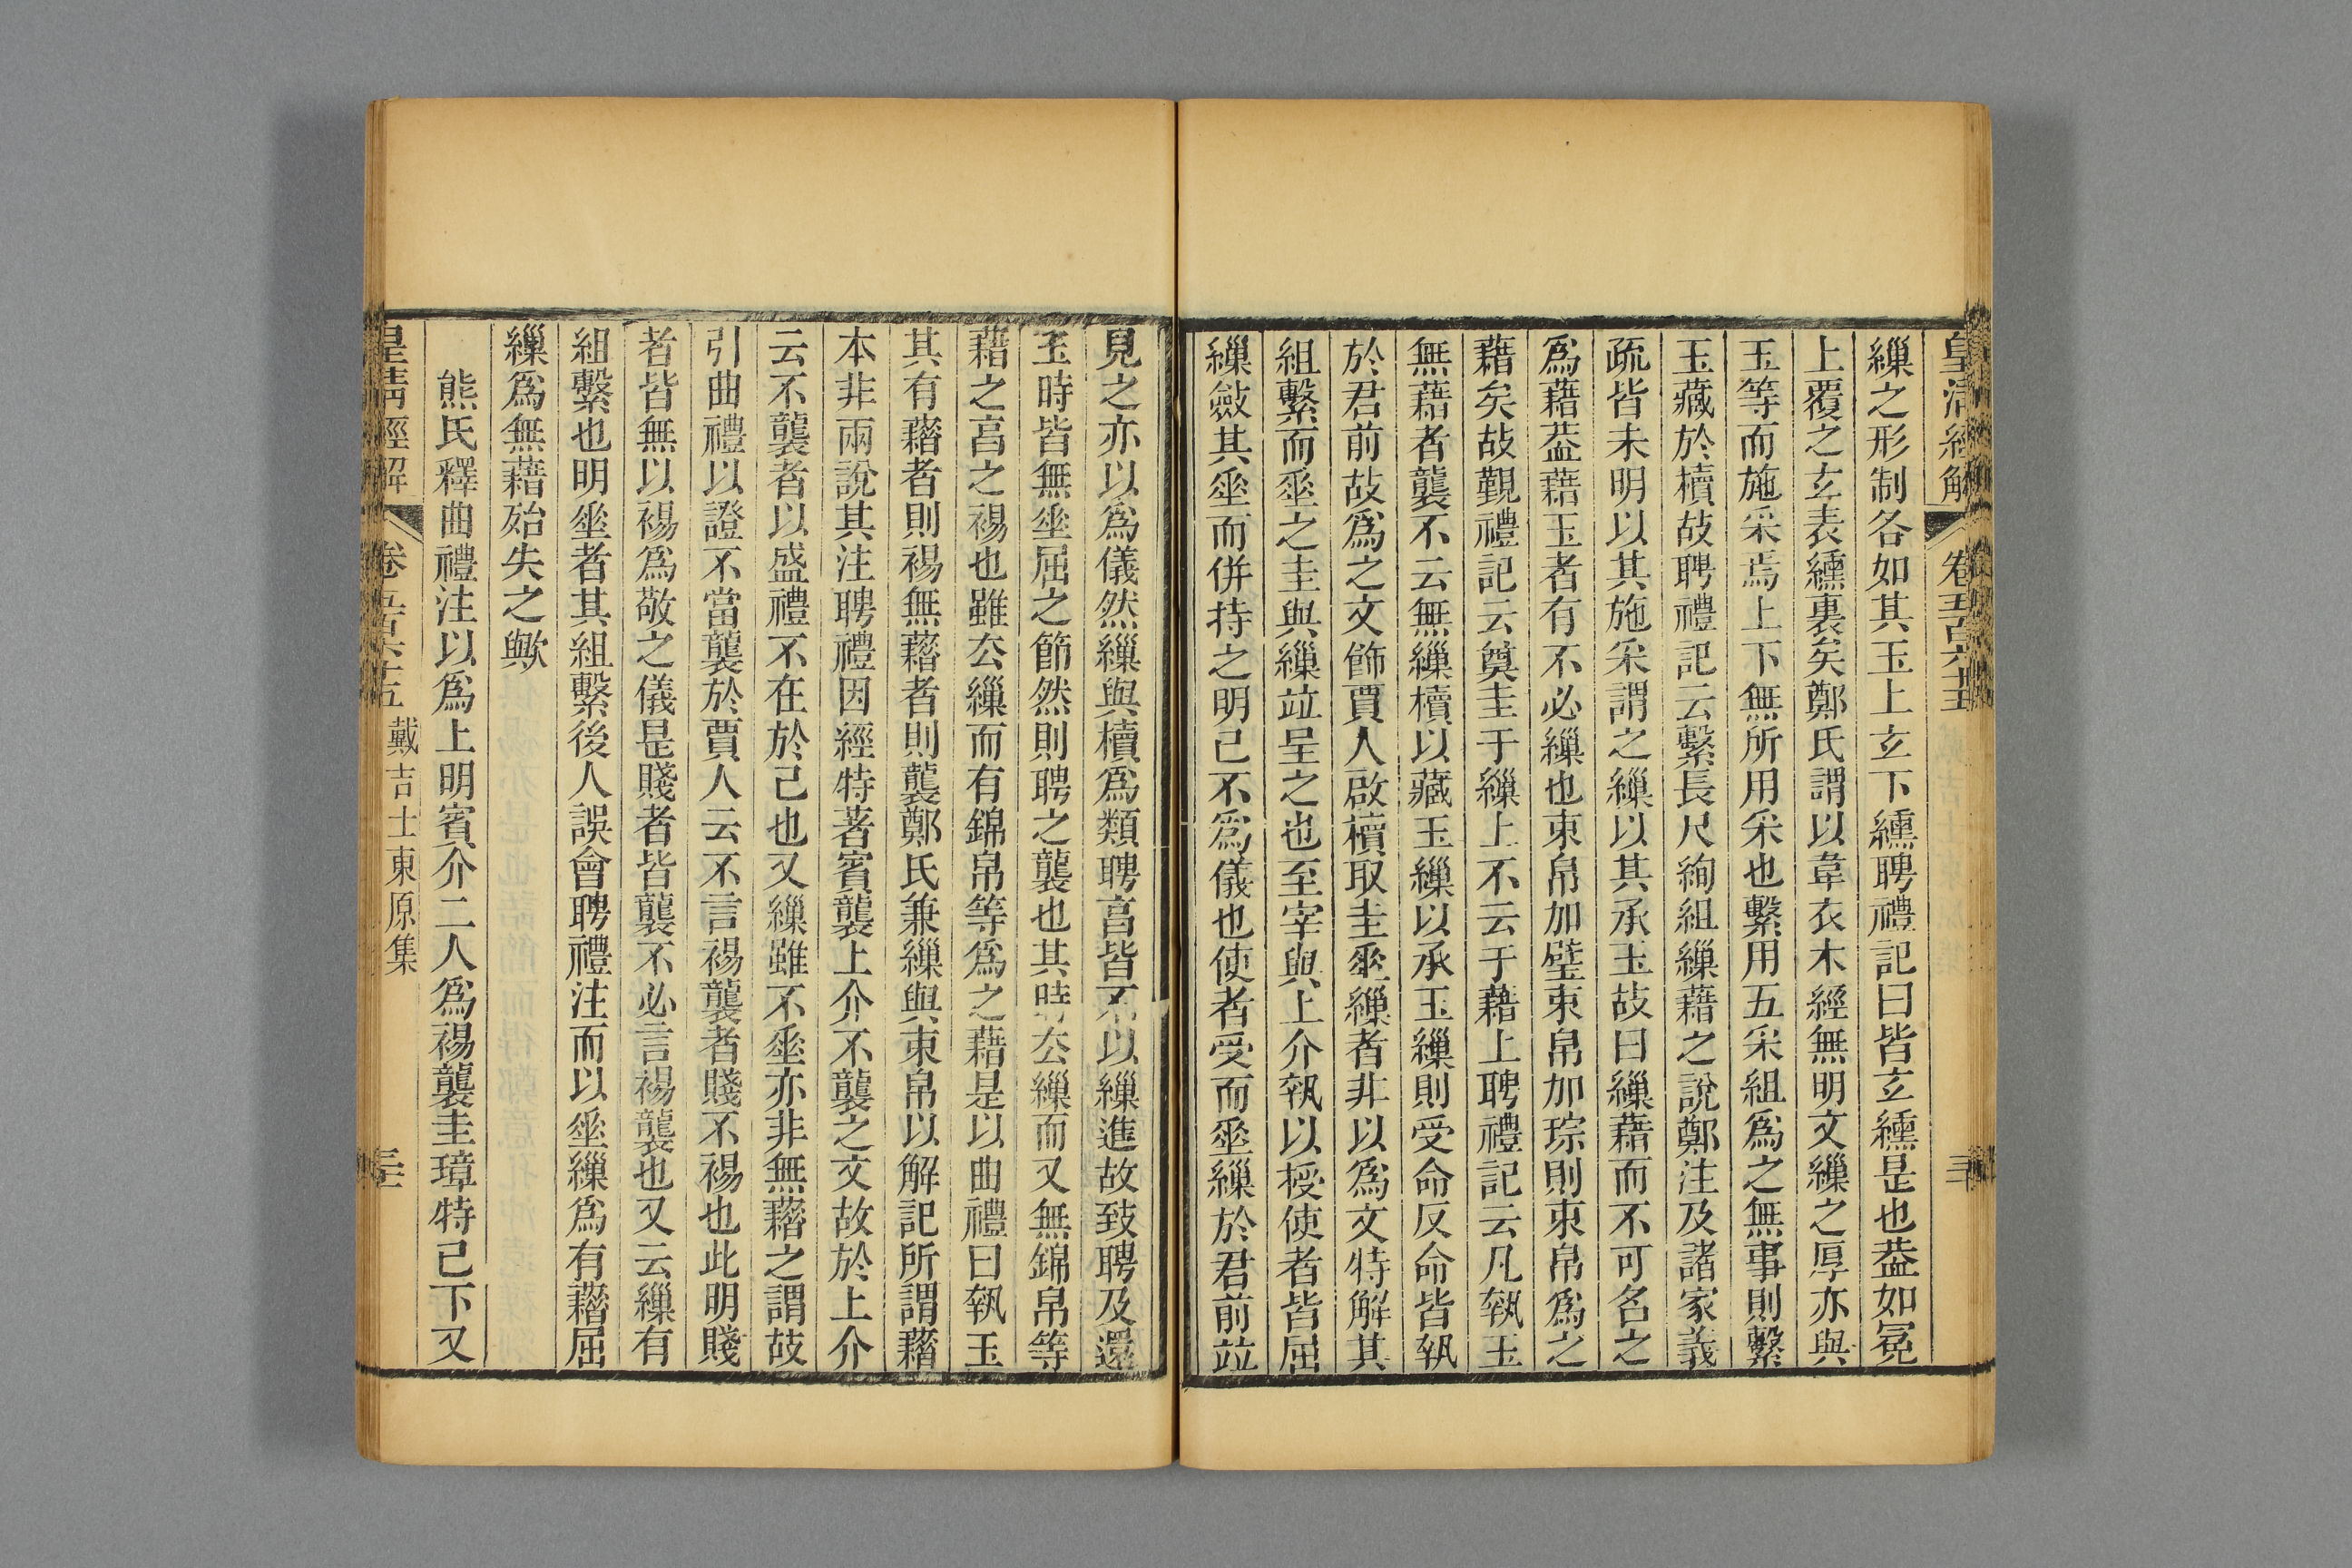 皇清經解 卷五百六十五
繅之形制各如其玉上玄下纁聘禮記曰皆玄纁是也葢如冕
上覆之玄表纁裏矣鄭氏謂以韋衣木經無明文繅之厚亦與
玉等而施采焉上下無所用采也繫用五采組爲之無事則繫
玉藏於櫝故聘禮記云繫長尺絢組繅藉之說鄭注及諸家義
疏皆未明以其施采謂之繅以其承玉故曰繅藉而不可名之
爲藉葢藉玉者有不必繅也束帛加璧束帛加琮則束帛爲之
藉矣故覲禮記云奠圭于繅上不云于藉上聘禮記云凡執玉
無藉者襲不云無繅櫝以藏玉繅以承玉繅則受命反命皆執
於君前故爲之文飾賈人啟櫝取圭𠂹繅者非以爲文特解其
組繫而𠂹之圭與繅竝呈之也至宰與上介執以授使者皆屈
繅斂其𠂹而併持之明己不爲儀也使者受而𠂹繅於君前竝
見之亦以爲儀然繅與櫝爲類聘亯皆不以繅進故致聘及還
玉時皆無𠂹屈之節然則聘之襲也其時厺繅而又無錦帛等
藉之亯之裼也雖厺繅而有錦帛等爲之藉是以曲禮曰執玉
其有藉者則裼無藉者則襲鄭氏兼繅與束帛以解記所謂藉
本非兩說其注聘禮因經特著賓襲上介不襲之文故於上介
云不襲者以盛禮不在於己也又繅雖不𠂹亦非無藉之謂故
引曲禮以證不當襲於賈人云不言裼襲者賤不裼也此明賤
者皆無以裼爲敬之儀是賤者皆襲不必言裼襲也又云繅有
組繫也明𠂹者其組繫後人誤會聘禮注而以𠂹繅爲有藉屈
繅爲無藉殆失之歟
熊氏釋曲禮注以爲上明賓介二人爲裼襲圭璋特已下又
皇清經解 卷五百六十五 戴吉士東原集